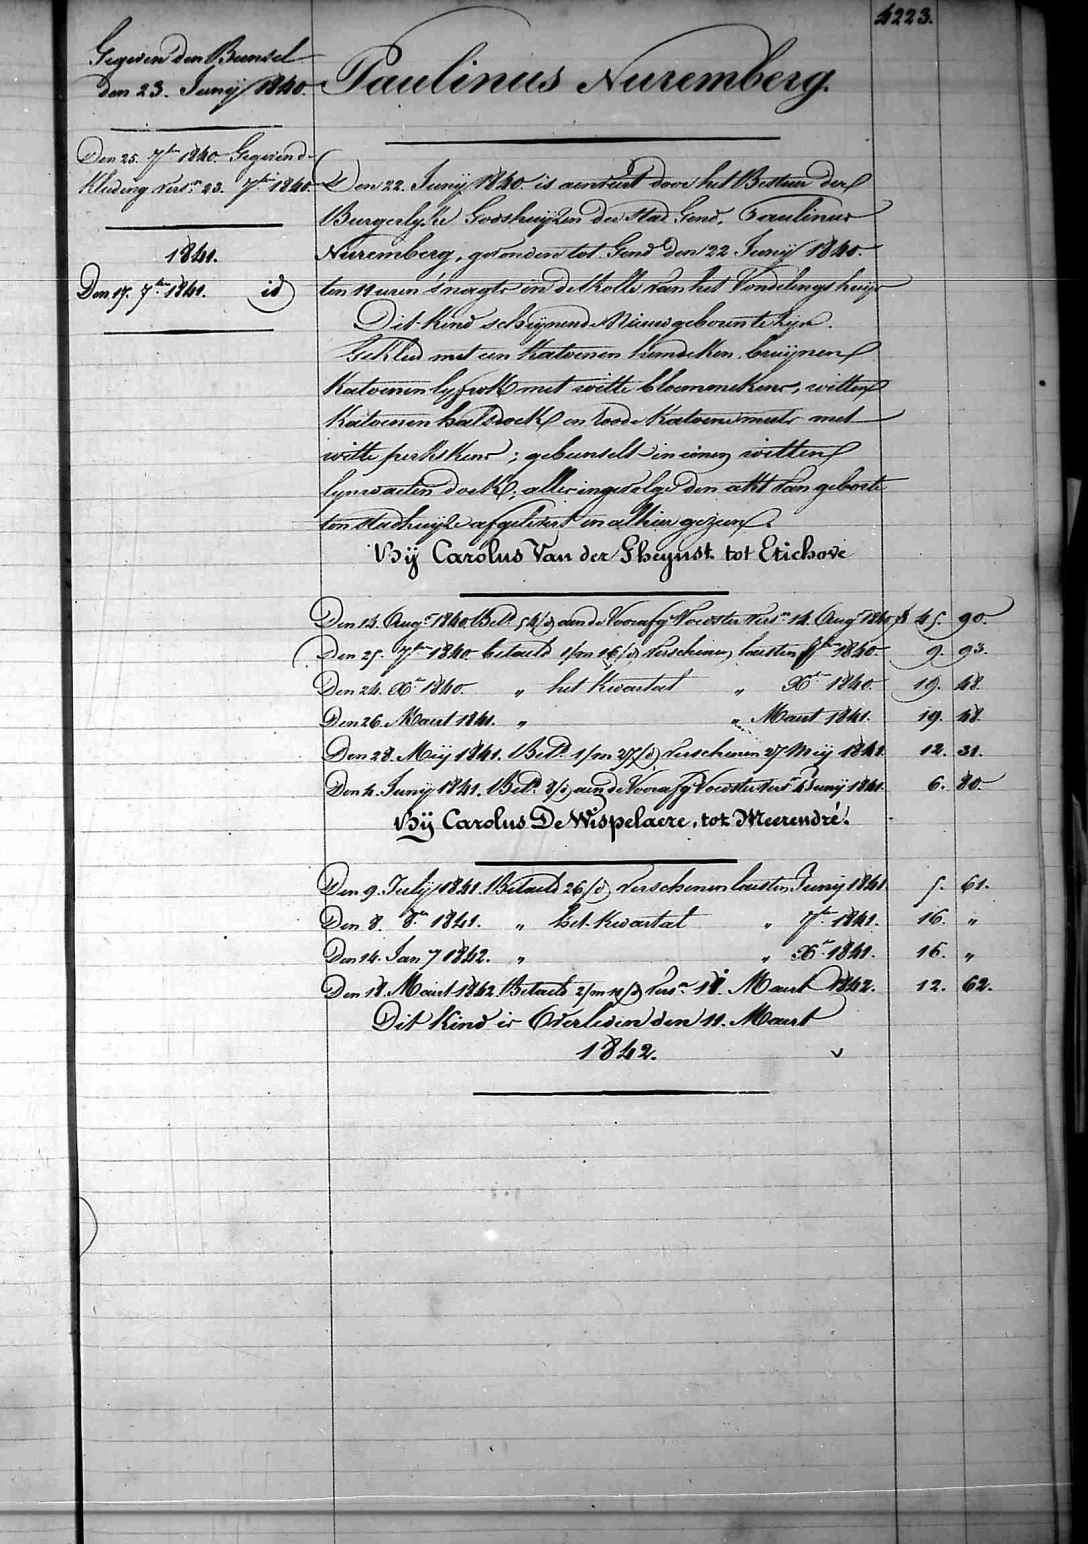 4223.
Gegeven den Bunsel
den 23. Junij 1840.
Paulinus Nuremberg.
Den 25. 7br 1840. Gegeven d
Kleding versn 23. 7br 1840.
1841.
Den 17. 7br 1841. id
Den 22. Junij 1840. is aenveird door het Bestuer der
Burgerlyke Godshuijzen der Stad Gend, Paulinus
Nuremberg, gevonden tot Gend den 22 Junij 1840.
ten 11 uren 's nagts in de Rolle van het Vondelingshuijs
Dit kind scheijnende Nieuwgeboren te zijn.
Gekleed met een Katoenen hemdeken, bruijnen
Katoenen lyfrok met witte bloemmekens, witten
Katoenen halsdoek en roode Katoene muts met
witte perkskens; gebunseld in eenen witten
lynwaeten doek; alles ingevolge den akt van geboorte
ten Stadhuijze afgelevert en alhier gezien.
Bij Carolus Van der Gheynst tot Etichove
Den 14. Augt 1840. Betd 54/d aen de Voorafg Voedster versn 14. Augt 1840 f 45. 90.
Den 25. 7br 1840. betaeld 1/m 16/d verschenen laesten 7br 1840 9. 93.
Den 24. Xbr 1840. " het Kwartael " Xbr 1840. 19. 48.
Den 26. Maert 1841. " " Maert 1841. 19. 48.
Den 28. Meij 1841. Betd 1/m 27/d verschenen 27 Meij 1841. 12. 31.
Den 4. Junij 1841. Betd 8/d aen de Voorafg Voedster versn 4 Junij 1841. 6. 80.
Bij Carolus De Wispelaere, tot Meerendré.
Den 9. Julij 1841. Betaeld 26/d verschenen laesten Junij 1841. 5. 61.
Den 8. 8br 1841. " het Kwartael " 7br 1841. 16. "
Den 14. Jan 7 1842. " " Xbr 1841. 16. "
Den 18. Maert 1842. Betaeld 2/m 11/d versn 11. Maert 1842. 12. 62.
Dit Kind is Overleden den 11. Maert
1842.